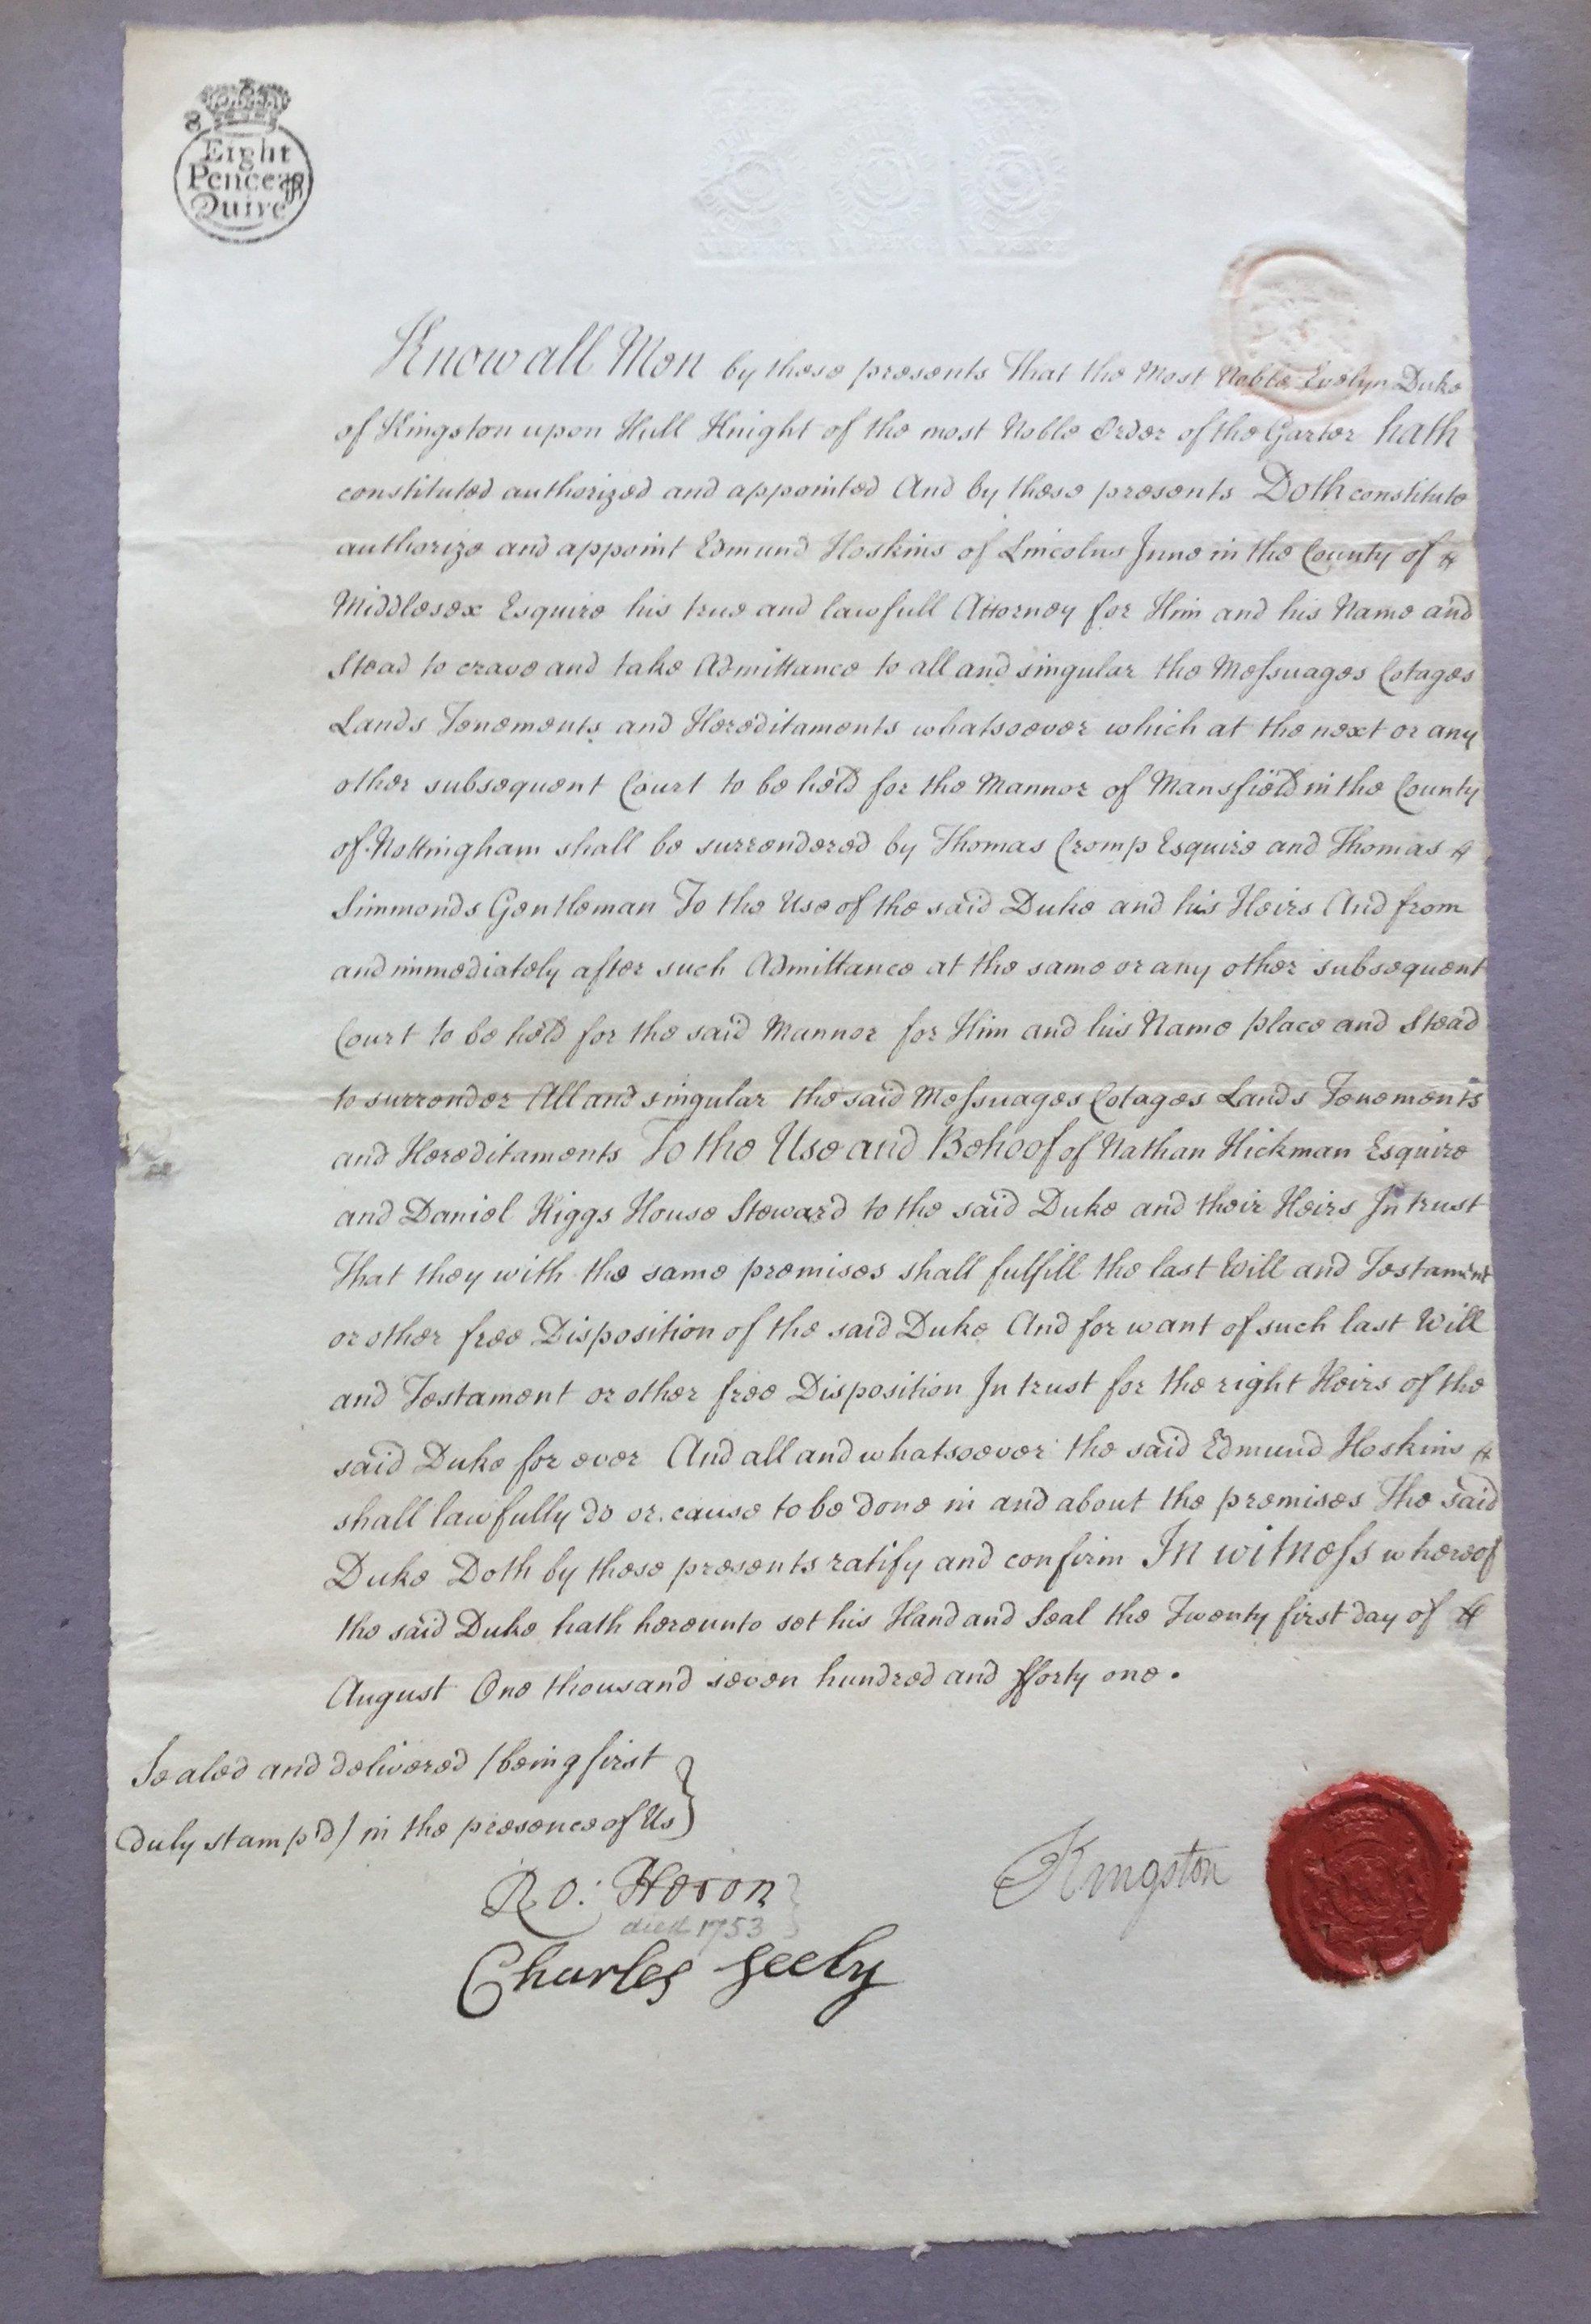 8
Eight
Pence p
Quire
Know all Men by these presents That the Most Noble Evelyn Duke
of Kingston upon Hull Knight of the most Noble Order of the Garter hath
constituted authorized and appointed And by these presents Doth constitute
authorize and appoint Edmund Hoskins of Lincolns Inne in the County of
Middlesex Esquire his true and lawfull Attorney for Him and his Name and
Stead to crave and take Admittance to all and singular the Messuages Cotages
Lands Tenements and Hereditaments whatsoever which at the next or any
other subsequent Court to be held for the Mannor of Mansfield in the County
of Nottingham shall be surrendered by Thomas Cromp Esquire and Thomas
Simmonds Gentleman To the Use of the said Duke and his Heirs And from
and immediately after such Admittance at the same or any other subsequent
Court to be held for the said Mannor for Him and his Name place and Stead
to surrender All and singular the said Messuages Cotages Lands Tenements
and Hereditaments To the Use and Behoof of Nathan Hickman Esquire
and Daniel Higgs House Steward to the said Duke and their Heirs In trust
That they with the same premises shall fulfill the last Will and Testament
or other free Disposition of the said Duke And for want of such last Will
and Testament or other free Disposition In trust for the right Heirs of the
said Duke for ever And all and whatsoever the said Edmund Hoskins
shall lawfully do or cause to be done in and about the premises The said
Duke Doth by these presents ratify and confirm In witness whereof
the said Duke hath hereunto set his Hand and Seal the Twenty first day of
August One thousand seven hundred and fforty one.
Sealed and delivered / being first
duly stamp'd / in the presence of Us
Ro: Heron
died 1753
Charles Seely
Kingston